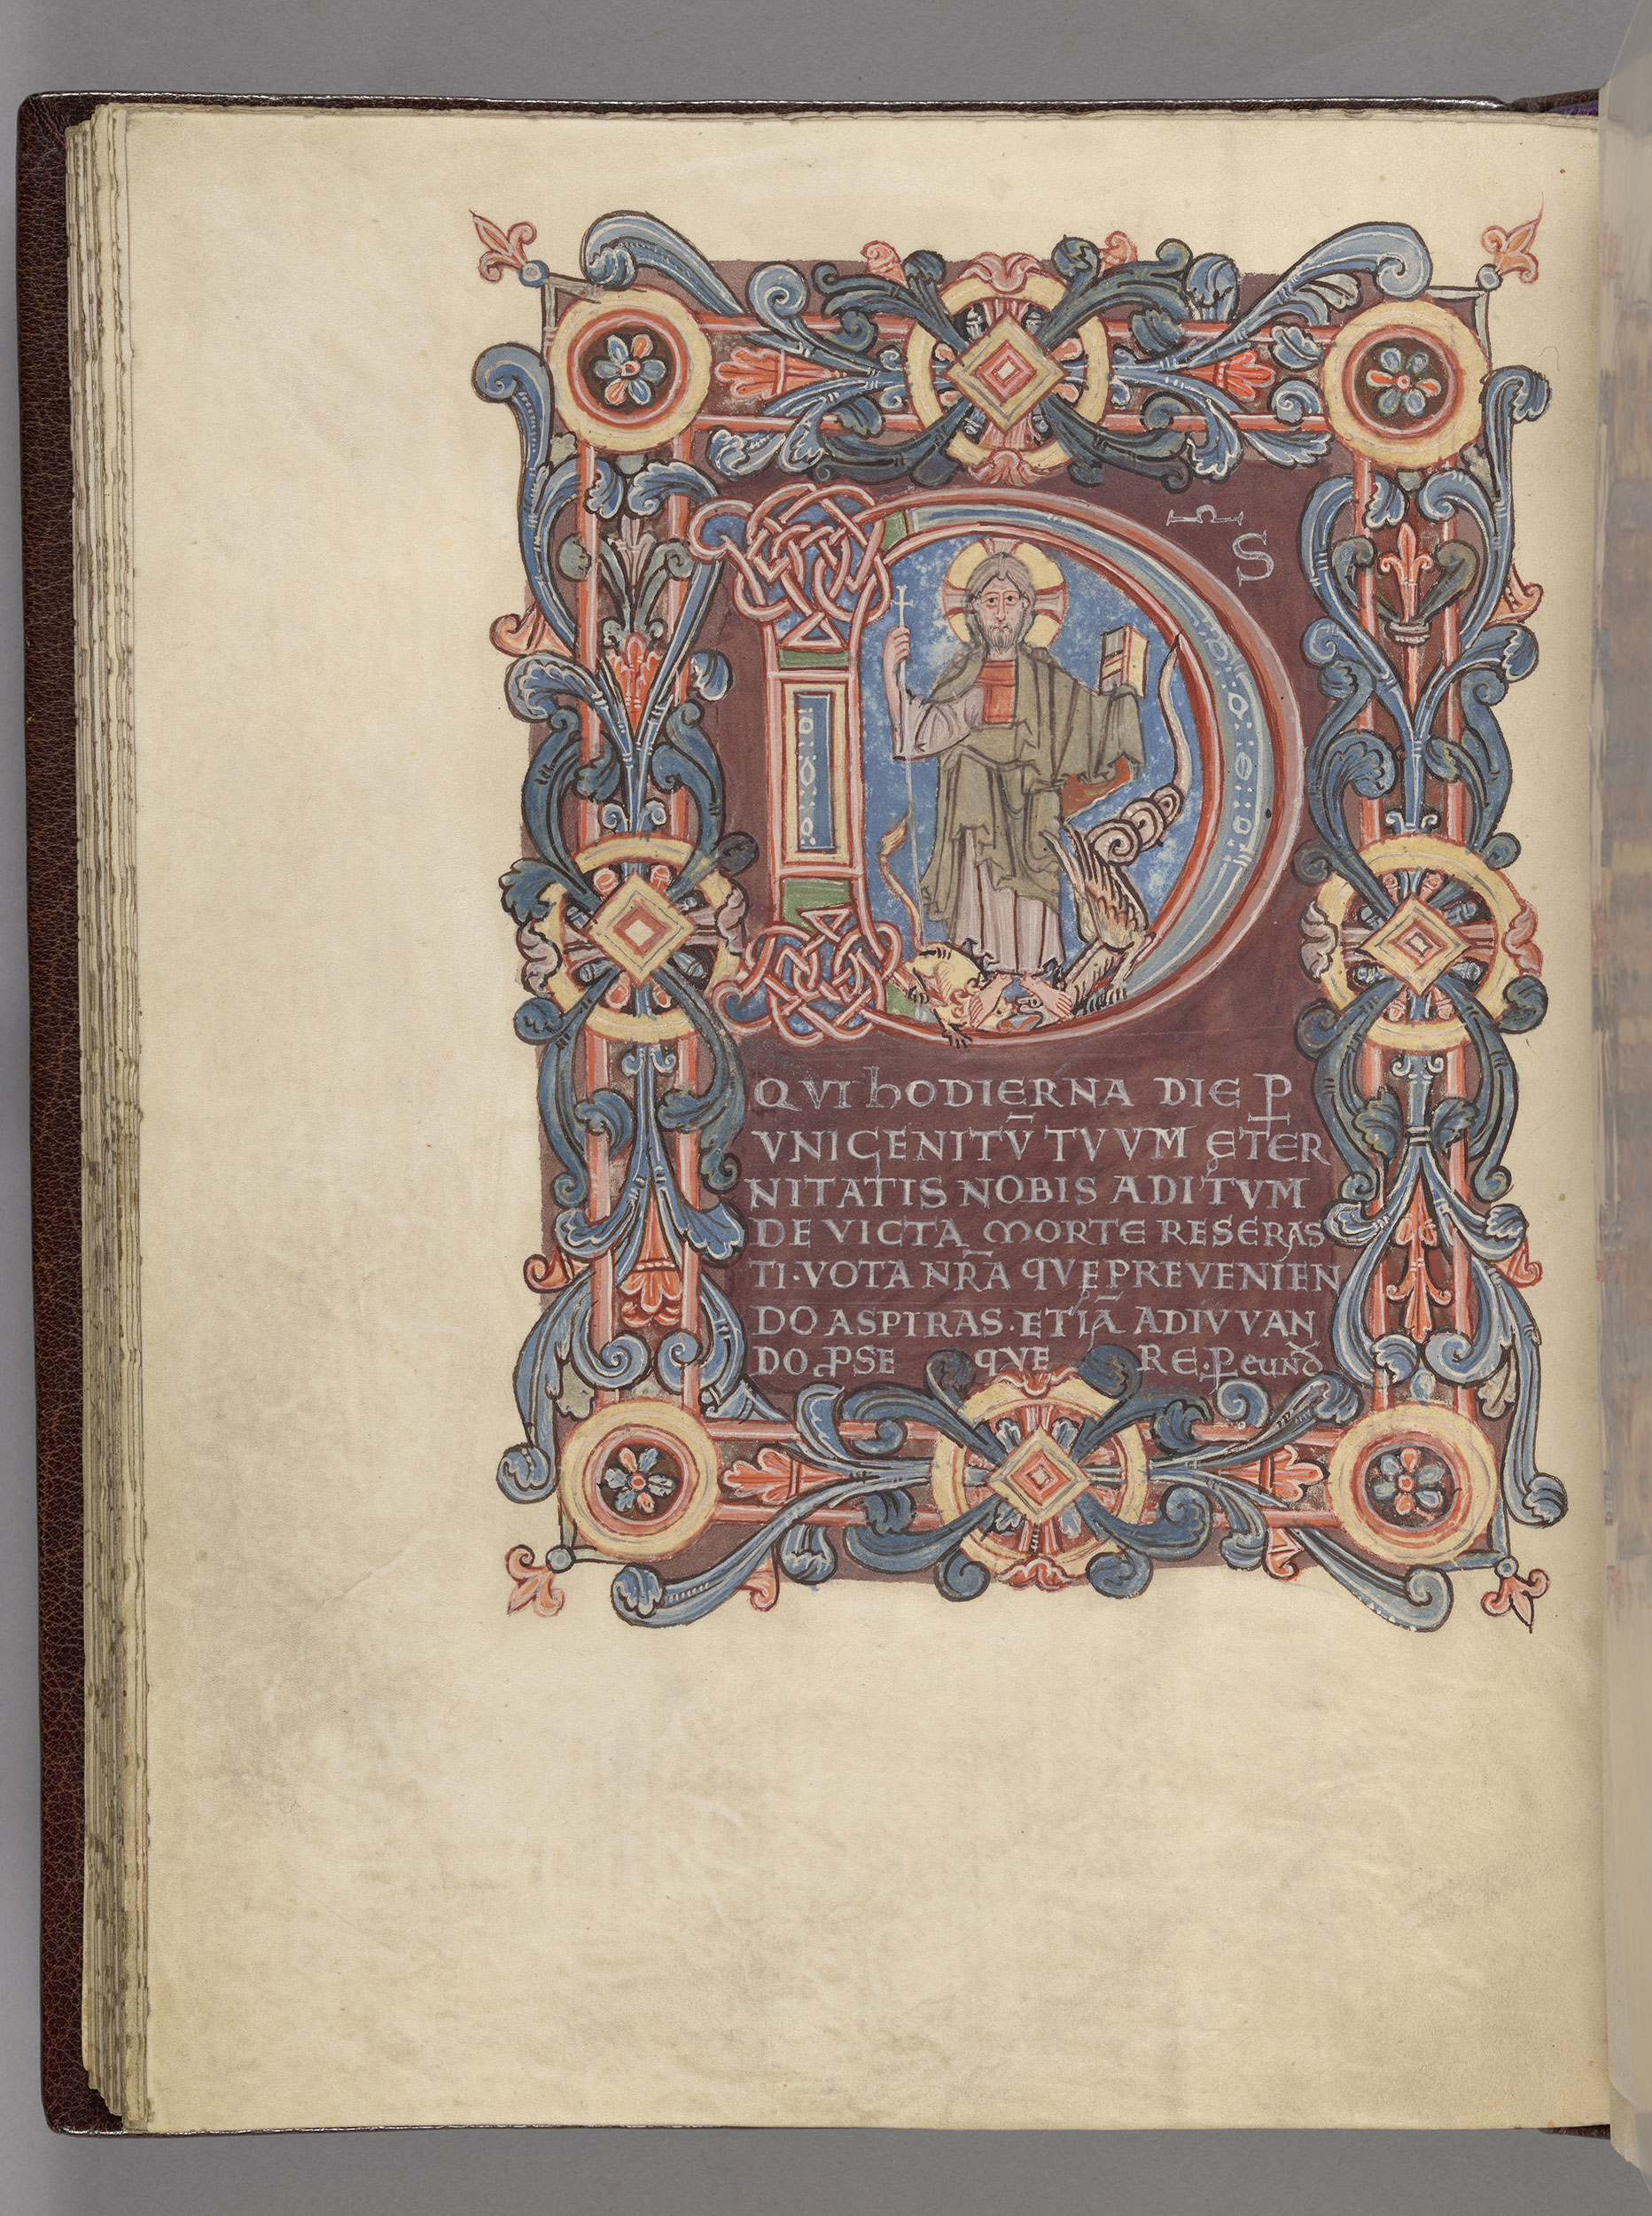 D S̄
QVI hODIERNA DIE P̲
VNIGENITV̄ TVVM ETER
NITATIS NOBIS ADITVM
DEVICTA MORTE RESERAS
TI·VOTA NR̄A QVE PREVENIEN
DO ASPIRAS·ETIĀ ADIVVAN
DO PSE QVE RE·P̲ eund